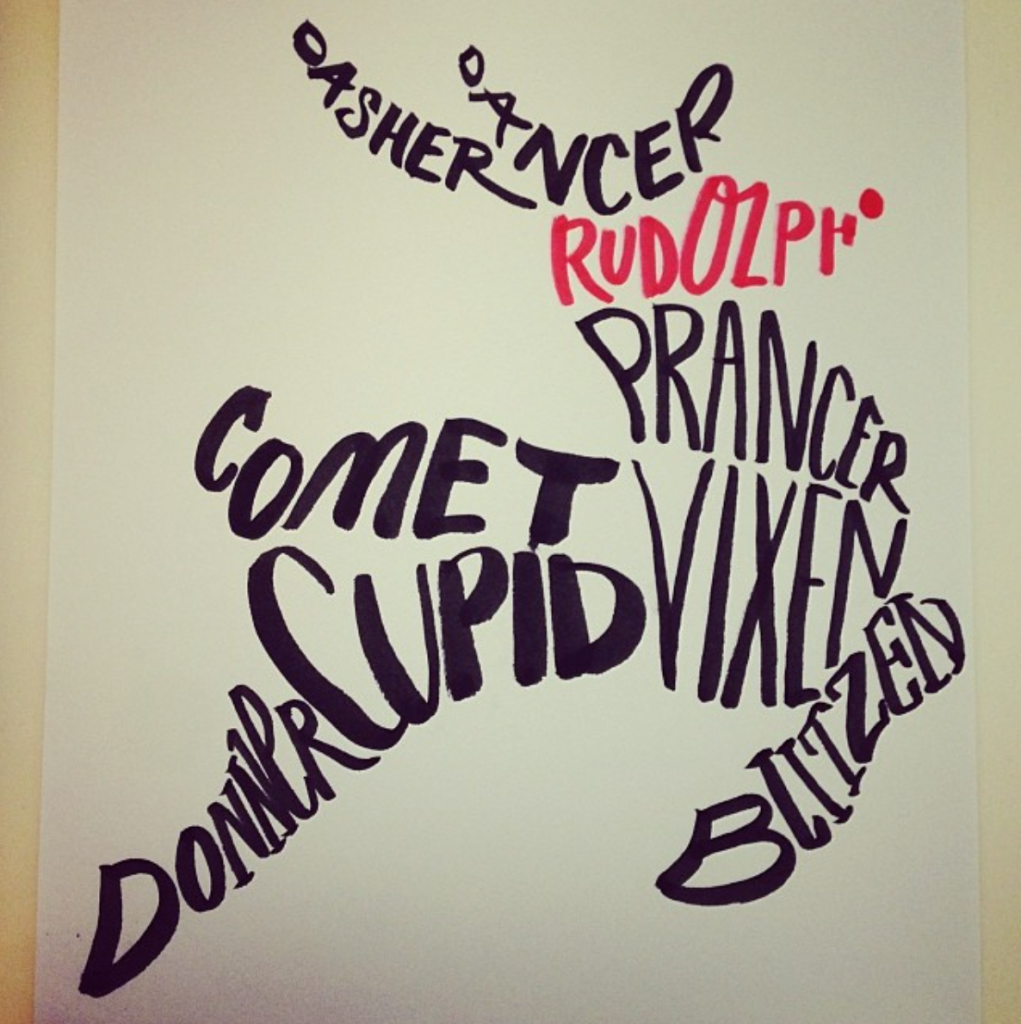 DASHER
DANCER
RUDOLPH
PRANCER
COMET
VIXEN
CUPID
BLITZEN
DONNER